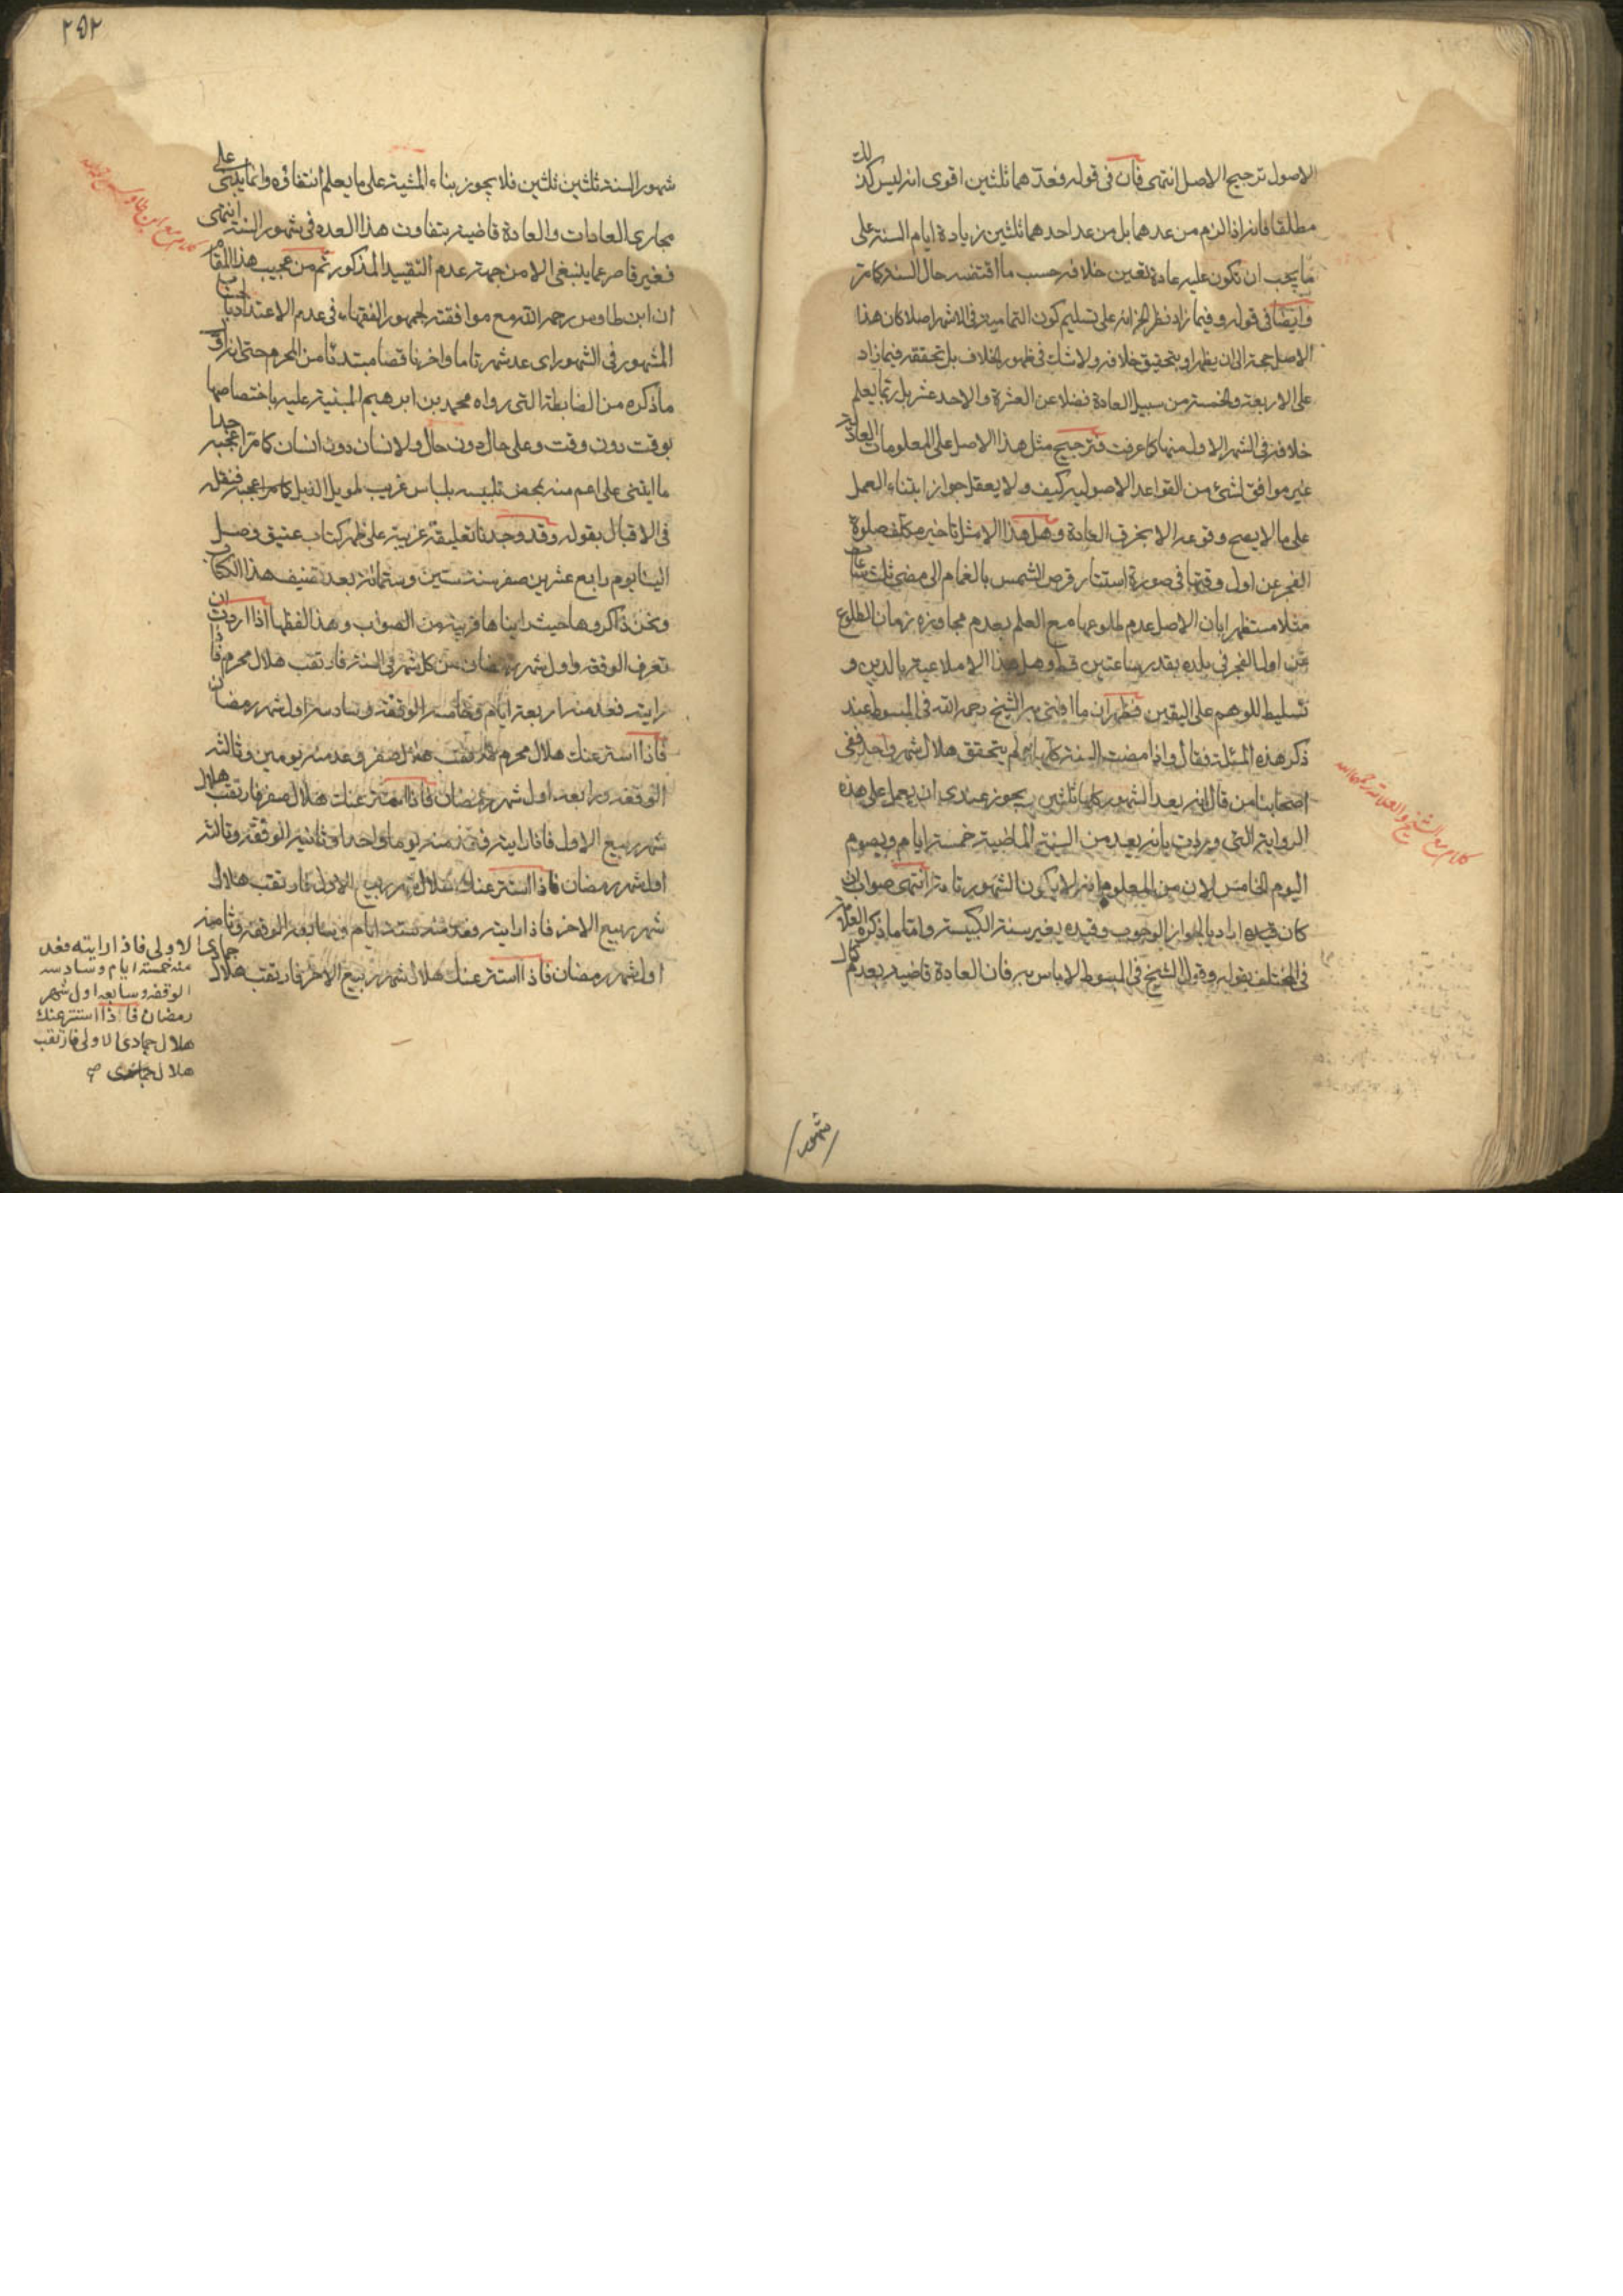 الاصول ترجيح الاصل انتهى فان فى قوله فعدّهما ثلثين اقوى انه ليس كذلك
مطلقا فانه اذا لزم من عدهما بل من عد احدهما ثلثين زيادة ايام السنة على
ما يجب ان تكون عليه عادة تعين خلافه حسب ما اقتضه حال السنة كما مر
وايضا فى قوله وفيما زاد نظر الخ انه على تسليم كون التمامية فى الاشهر اصلا كان هذا
الاصل حجة الى ان يظهر او يتحقق خلافه ولا شك فى ظهور الخلاف بل تحققه فيما زاد
على الاربعة والخمسة من سبيل العادة فضلا عن العشرة والاحد عشر بل ربما يعلم
خلافه فى الشهر الاول منها كما عرفت فترجيح مثل هذا الاصل على المعلومات العادية
غير موافق لشئ من القواعد الاصولية كيف ولا يعقل جواز ابتناء العمل
على ما لا يصح وقوعه الا بخرق العادة وهل هذا الا مثل تاخير مكلف صلوة
الفجر عن اول وقتها فى صورة استتار قرص الشمس بالغمام الى مضى ثلث ساعات
مثلا مستظهرا بان الاصل عدم طلوعها مع العلم بعدم مجاوزة زمان الطلوع
عن اول الفجر فى بلده بقدر ساعتين قط وهل هذا الا ملاعبة بالدين و
تسليط للوهم على اليقين فظهر ان ما افتى به الشيخ رحمه الله فى المبسوط عند
ذكر هذه المسئلة فقال واذا مضت السنة كلها ولم يتحقق هلال شهر واحد ففى
اصحابنا من قال انه يعد الشهور كلها ثلثين يجوز عندى ان يعمل على هذه
الرواية التى وردت بانه يعد من السنة الماضية خمسة ايام ويصوم
اليوم الخامس لان من المعلوم انه لا يكون الشهور تامة انتهى صواب ان
كان قيده اراد بالجواز الوجوب وقيده بغير سنة الكبيسة واما ما ذكره العلامة
فى المختلف بقوله وقول الشيخ فى المبسوط لا باس به فان العادة قاضية بعدم كمال
كلام مع الشيخ والعلامة رحمهما الله
شهور
٢٥٢
شهور السنة ثلثين ثلثين فلا يجوز بناء المشية على ما يعلم انتفاؤه وانما يبتنى على
مجارى العادات والعادة قاضية بتفاوت هذا العدد فى شهور السنة انتهى
فغير قاصر عما ينبغى الا من جهة عدم التقييد المذكور ثم من عجيب هذا المقام
ان ابن طاوس رحمه الله مع موافقته لجمهور الفقهاء فى عدم الاعتداد بالحساب
المشهور فى الشهور اى عد شهر تاما واخر ناقصا مبتدئا من المحرم حتى انه اول
ما ذكره من الضابطة التى رواه محمد بن ابرهيم المبنية عليه باختصاصها
بوقت دون وقت وعلى حال دون حال ولانسان دون انسان كما مر اعجبه جدا
ما ابتنى على اعم منه بمحض تلبيسه بلباس غريب طويل الذيل كما مر اعجبه فنقل
فى الاقبال بقوله وقد وجدنا تعليقة غريبة على ظهر كتاب عتيق وصل
الينا يوم رابع عشرين صفر سنة ستين وستمائة بعد تصنيف هذا الكتاب
ونحن ذاكروها حيث رايناها قريبة من الصواب وهذا لفظها اذا اردت ان
تعرف الوقفة واول شهر رمضان من كل شهر فى السنة فارتقب هلال محرم فاذا
رايته فعد منه اربعة ايام وخامسه الوقفة وسادسه اول شهر رمضان
فاذا استتر عنك هلال محرم فارتقب هلال صفر وعد منه يومين وثالثه
الوقفة ورابعه اول شهر رمضان فاذا استتر عنك هلال صفر فارتقب هلال
شهر ربيع الاول فاذا رايته فعد منه يوما واحدا وثانيه الوقفة وثالثه
اول شهر رمضان فاذا استتر عنك هلال شهر ربيع الاول فارتقب هلال
شهر ربيع الاخر فاذا رايته فعد منه ستة ايام وسابعه الوقفة وثامنه
اول شهر رمضان فاذا استتر عنك هلال شهر ربيع الاخر فارتقب هلال
جمادى الاولى فاذا رايته فعد
منه خمسة ايام وسادسه
الوقفه وسابعه اول شهر
رمضان فاذا استتر عنك
هلال جمادى الاولى فارتقب
هلال جمادى صح
كلام مع ابن طاوس